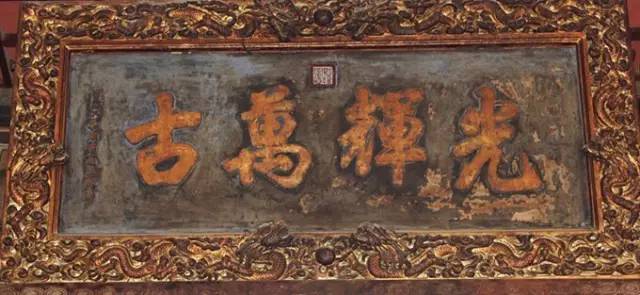 光輝萬古